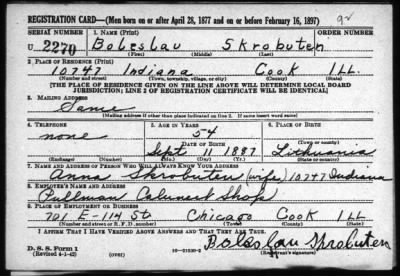 REGISTRATION CARD—(Men born on or after April 28, 1877 and on or before February 16, 1897)
SERIAL NUMBER 1. NAME (Print) ORDER NUMBER
U 2270 Boleslau Skrobuten
(First) (Middle) (Last)
2. PLACE OF RESIDENCE (Print)
10747 Indiana Cook ILL.
(Number and street) (Town, township, village, or city) (County) (State)
[THE PLACE OF RESIDENCE GIVEN ON THE LINE ABOVE WILL DETERMINE LOCAL BOARD
JURISDICTION; LINE 2 OF REGISTRATION CERTIFICATE WILL BE IDENTICAL]
3. MAILING ADDRESS
Same
[Mailing address if other than place indicated on line 2. If same insert word same]
4. TELEPHONE 5. AGE IN YEARS 6. PLACE OF BIRTH
none 54
DATE OF BIRTH (Town or county)
Sept 11 1887 Lithuania
(Exchange) (Number) (Mo.) (Day) (Yr.) (State or country)
7. NAME AND ADDRESS OF PERSON WHO WILL ALWAYS KNOW YOUR ADDRESS
Anna Skrobuten (wife) 10747 Indiana
8. EMPLOYER'S NAME AND ADDRESS
Pullman Calumet Shops
9. PLACE OF EMPLOYMENT OR BUSINESS
701 E-114 St Chicago Cook Ill
(Number and street or R. F. D. number) (Town) (County) (State)
I AFFIRM THAT I HAVE VERIFIED ABOVE ANSWERS AND THAT THEY ARE TRUE.
D. S. S. Form 1 Boleslau Skrobuten
(Revised 4-1-42) (over) (Registrant's signature)